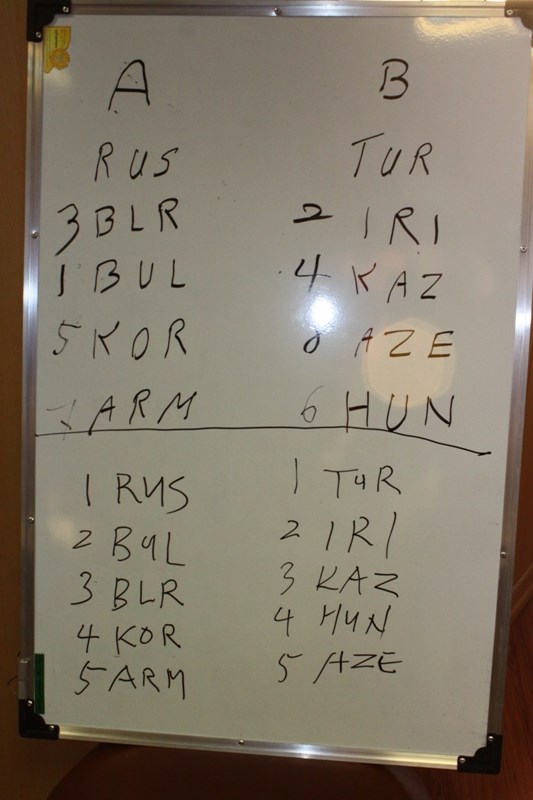 A B
RUS TUR
3 BLR 2 IRI
1 BUL 4 KAZ
5 KOR 8 AZE
7 ARM 6 HUN
1 RUS 1 TUR
2 BUL 2 IRI
3 BLR 3 KAZ
4 KOR 4 HUN
5 ARM 5 AZE